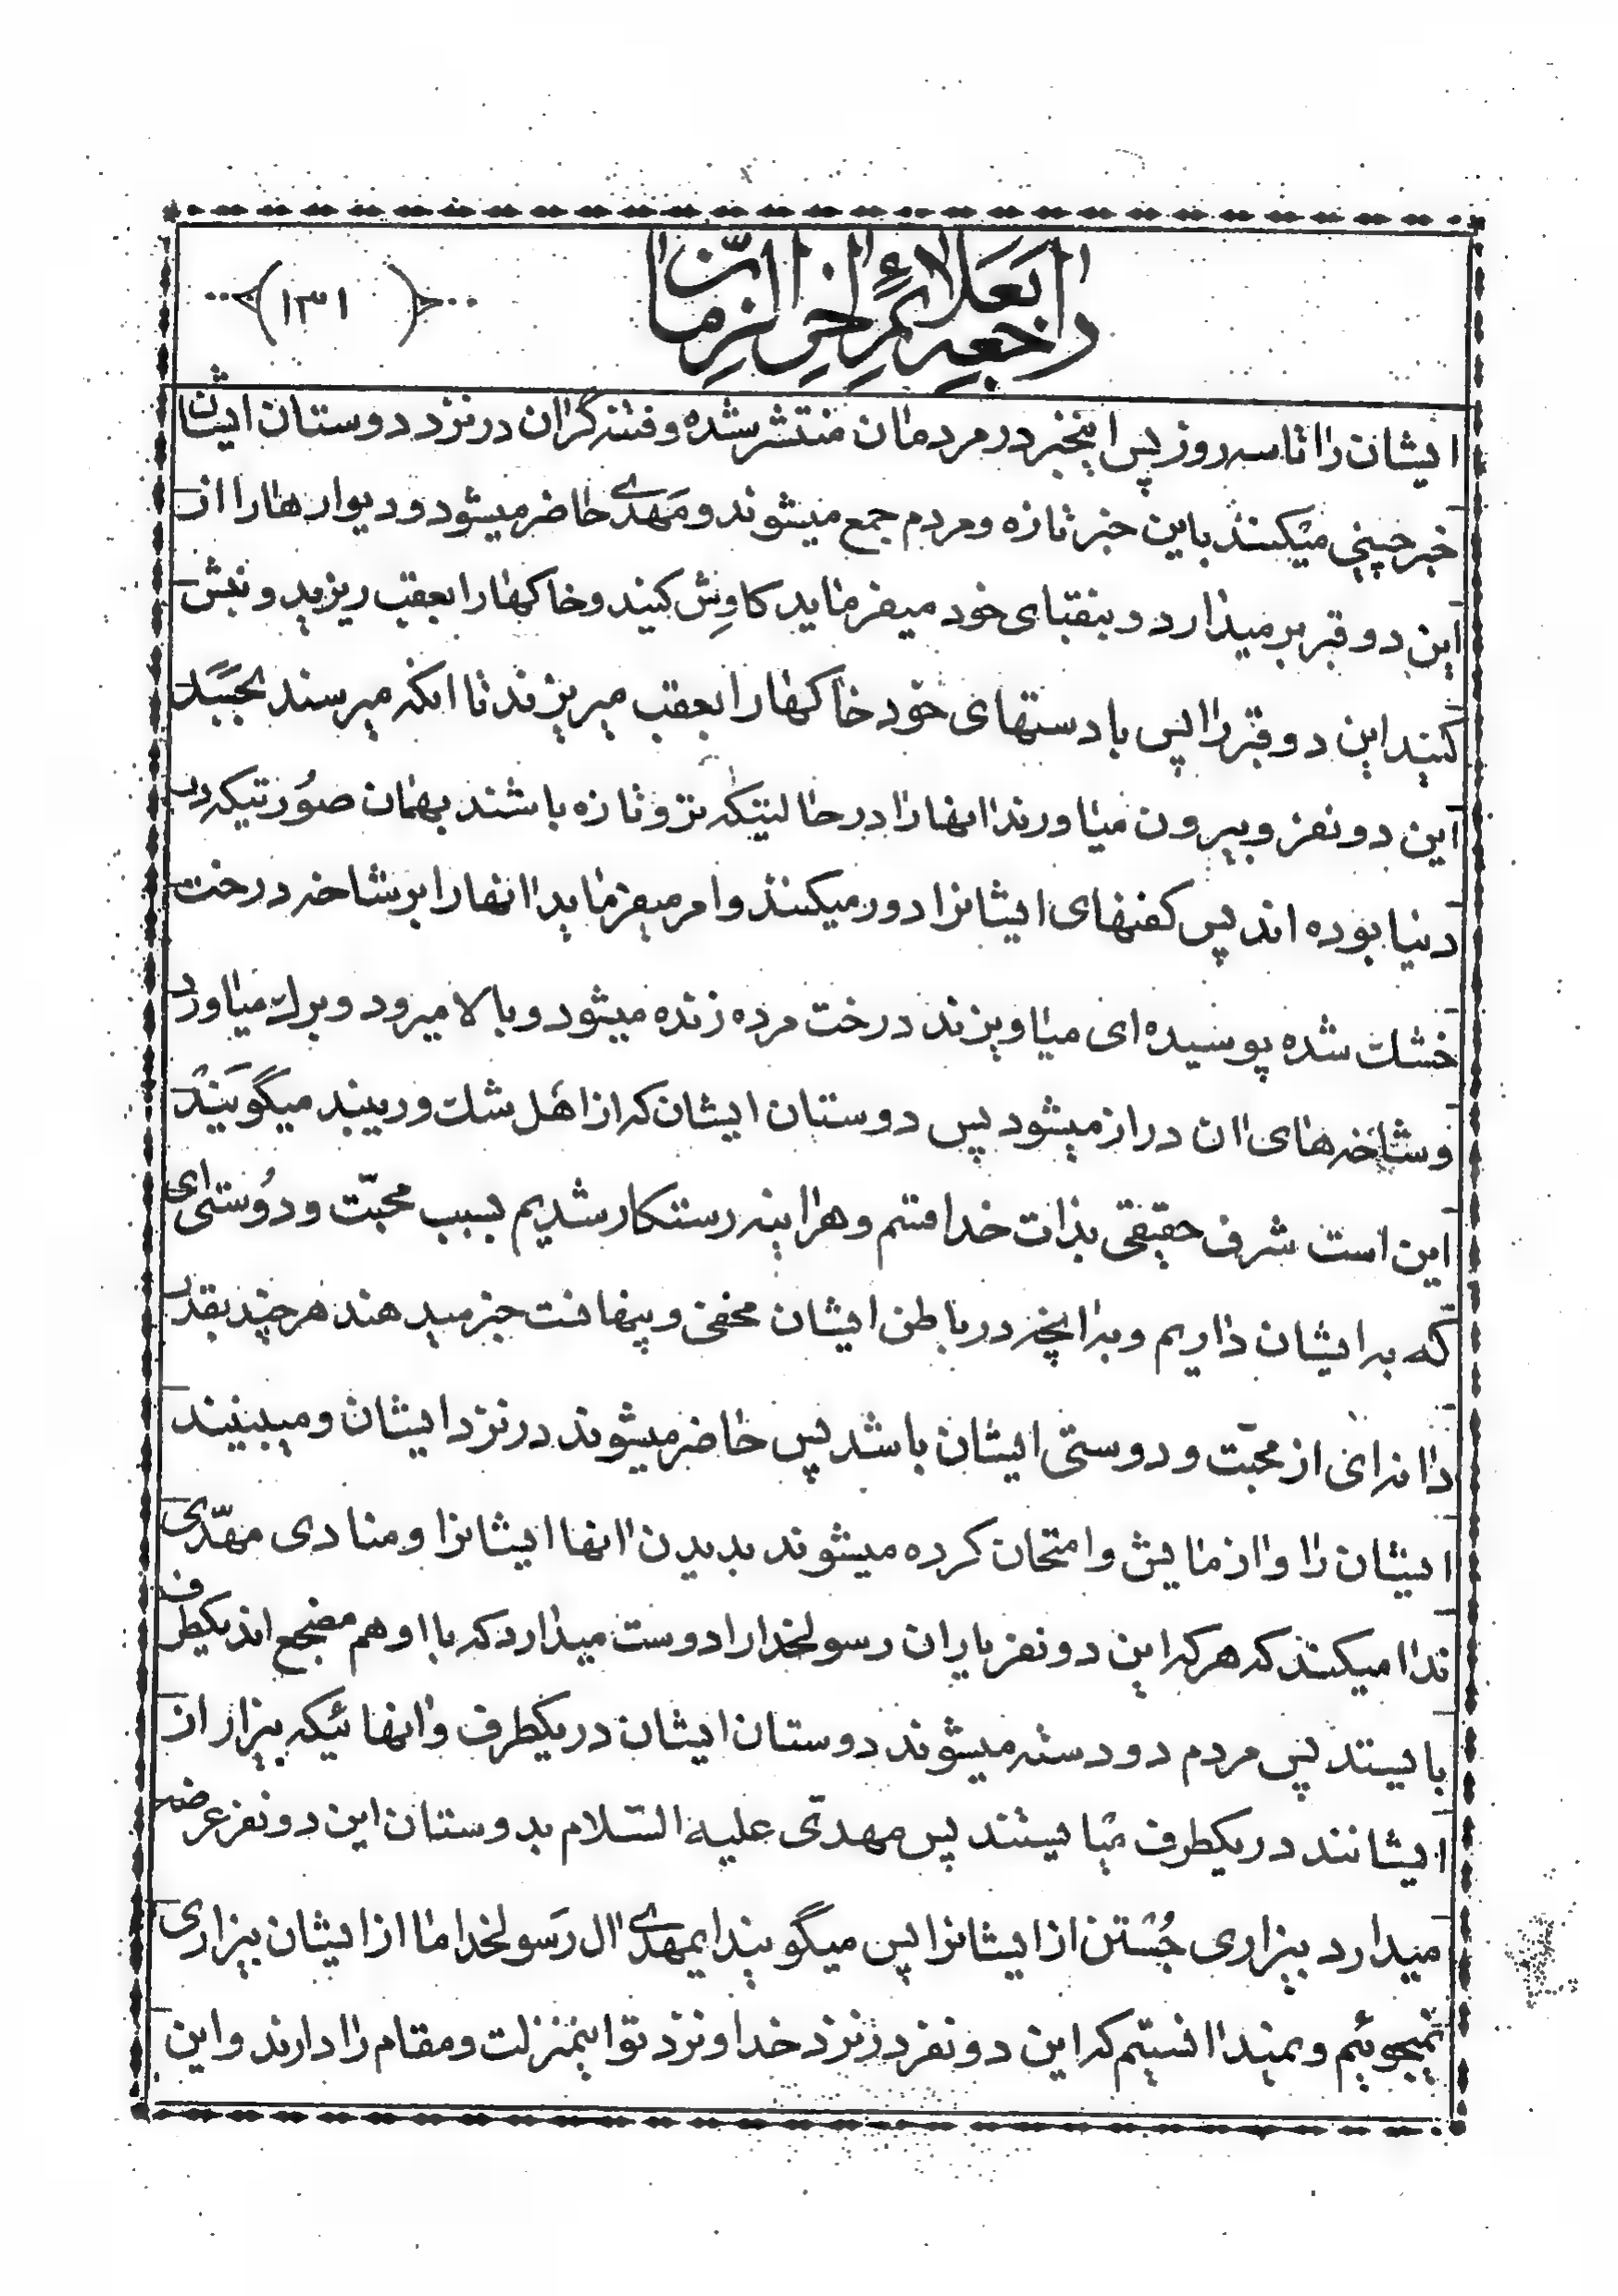 راجعه بعلائم اخر الزمان
(۱۳۱)
ایشان را تا سه روز پس اینخبر در مردمان منتشر شده و فتنه گران در نزد دوستان ایشان
خبرچینی میکنند باین خبر تازه و مردم جمع میشوند و مهدی حاضر میشود و دیوارها را از
این دو قبر بر میدارد و بنقبای خود میفرماید کاوش کنید و خاکها را بعقب ریزید و نبش
کنید این دو قبر را پس با دستهای خود خاکها را بعقب میریزند تا انکه میرسند بجسد
این دو نفر و بیرون میاورند انها را در حالتیکه تر و تازه باشند بهمان صورتیکه در
دنیا بوده اند پس کفنهای ایشانرا دور میکنند و امر میفرماید انها را بر شاخه درخت
خشک شده پوسیده ای میاویزند درخت مرده زنده میشود و بالا میرود و برک میاورد
و شاخه های ان دراز میشود پس دوستان ایشان که از اهل شک و ریبند میگویند
این است شرف حقیقی بذات خدا قسم و هراینه رستکار شدیم بسبب محبت و دوستی ای
که به ایشان داریم و به انچه در باطن ایشان مخفی و پنهانست خبر میدهند هر چند بقدر
دانه ای از محبت و دوستی ایشان باشد پس حاضر میشوند در نزد ایشان و میبینند
ایشان را و ازمایش و امتحان کرده میشوند بدیدن انها ایشانرا و منادی مهدی
ندا میکند که هر که این دو نفر یاران رسولخدا را دوست میدارد که با او هم مضجع اند یکطرف
بایستد پس مردم دو دسته میشوند دوستان ایشان در یکطرف و انهائیکه بیزار از
ایشانند در یکطرف میایستند پس مهدی علیه السلام بدوستان این دو نفر عرضه
میدارد بیزاری جستن از ایشانرا پس میگویند ایمهدی ال رسولخدا ما از ایشان بیزاری
نمیجوئیم و نمیدانستیم که این دو نفر در نزد خدا و نزد تو اینمنزلت و مقام را دارند و این